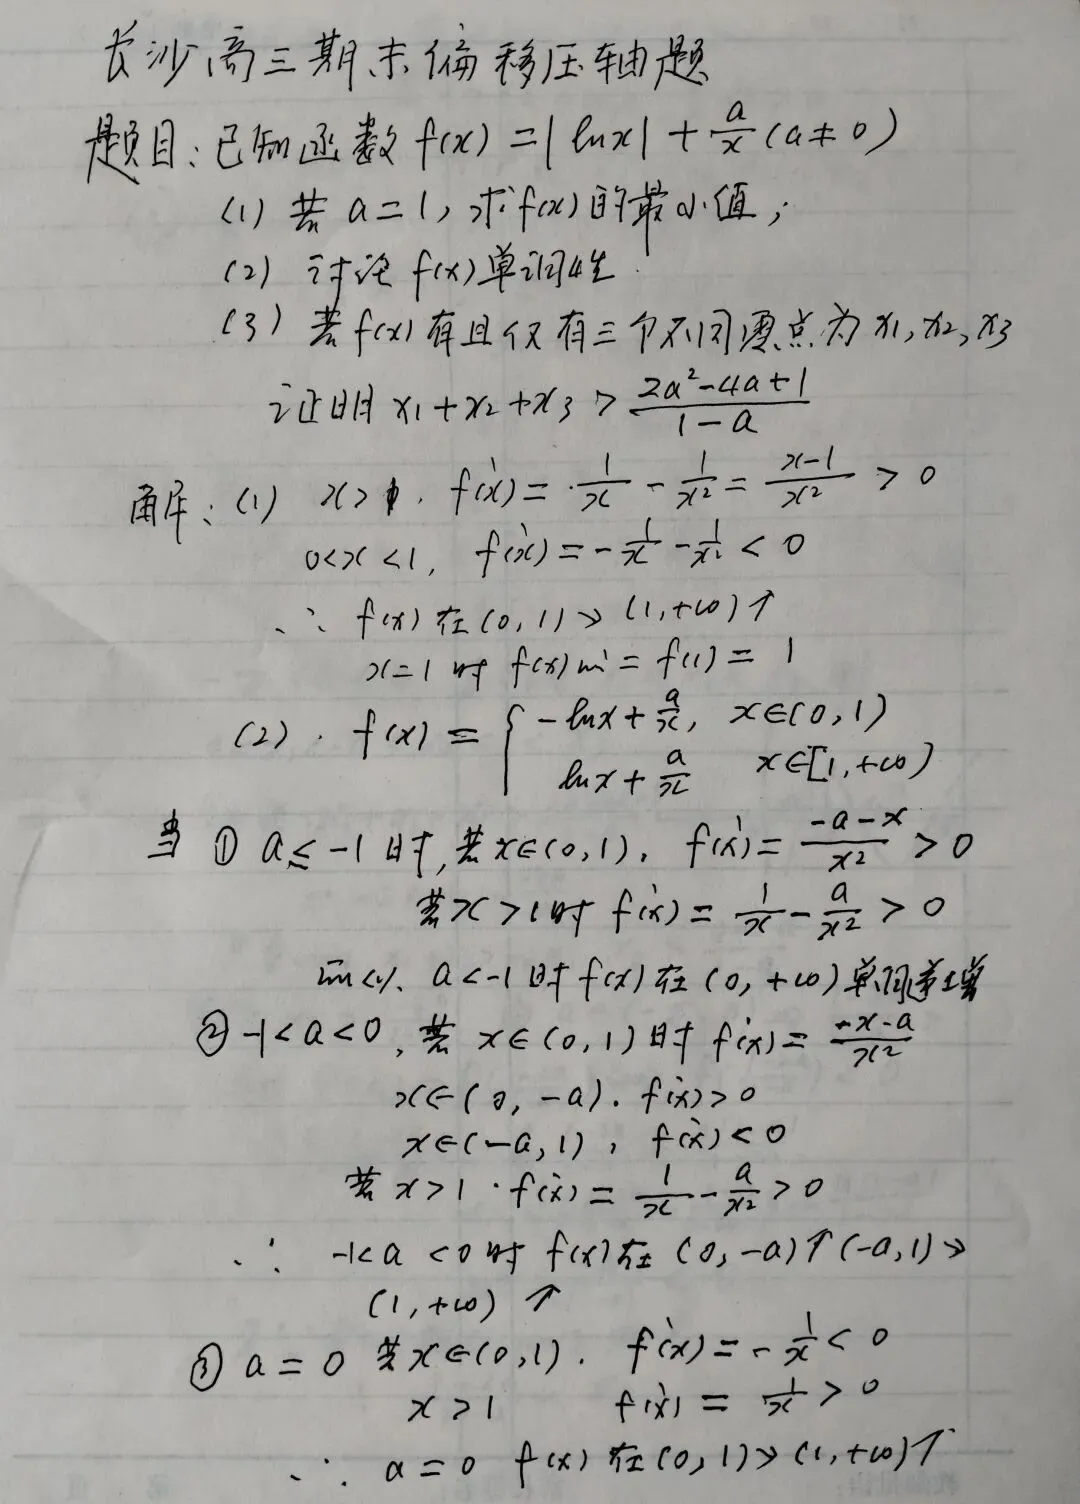 长沙高三期末偏移压轴题
题目:已知函数 f(x) = |lnx| + a/x (a≠0)
(1) 若 a=1, 求f(x)的最小值;
(2) 讨论 f(x)单调性.
(3) 若f(x)有且仅有三个不同零点为 x1, x2, x3
证明 x1+x2+x3 > (2a²-4a+1)/(1-a)
解:(1) x>1. f'(x) = 1/x - 1/x² = (x-1)/x² > 0
0<x<1, f'(x) = -1/x - 1/x² < 0
∴ f(x) 在(0,1)↘ (1,+∞)↑
x=1 时 f(x)mi = f(1) = 1
(2). f(x) = { -lnx + a/x, x∈(0,1)
lnx + a/x x∈[1,+∞)
当 ① a≤-1时,若x∈(0,1), f'(x) = (-a-x)/x² > 0
若x>1时 f'(x) = 1/x - a/x² > 0
所以. a<-1时f(x)在(0,+∞)单调递增
② -1<a<0, 若 x∈(0,1)时 f'(x) = (-x-a)/x²
x∈(0,-a). f'(x)>0
x∈(-a,1), f'(x)<0
若 x>1. f'(x) = 1/x - a/x² > 0
∴ -1<a<0时 f(x)在(0,-a)↑(-a,1)↘
(1,+∞)↗
③ a=0 若x∈(0,1). f'(x) = -1/x < 0
x>1 f'(x) = 1/x > 0
∴ a=0 f(x)在(0,1)↘(1,+∞)↑